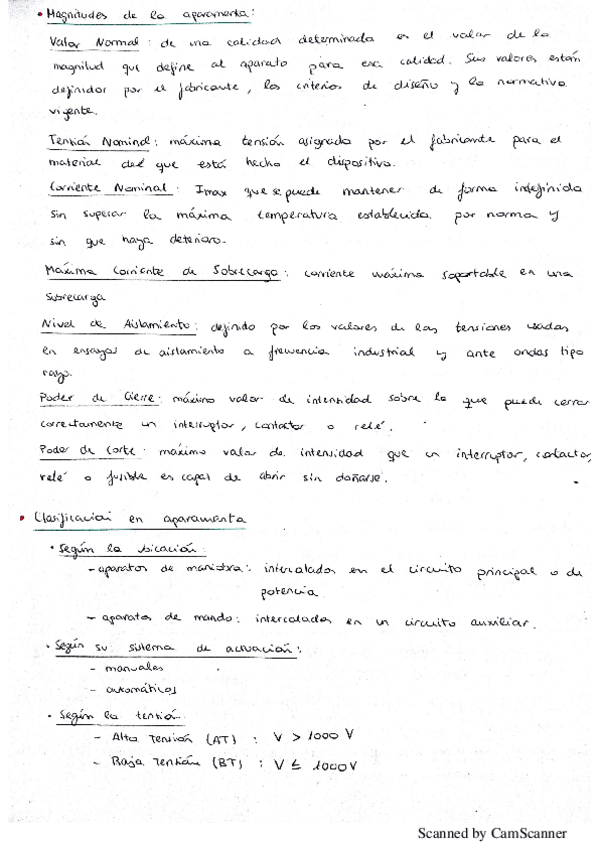 • Magnitudes de la aparamenta:
Valor Normal: de una calidad determinada es el valor de la
magnitud que define al aparato para esa calidad. Sus valores están
definidor por el fabricante, los criterios de diseño y la normativa
vigente.
Tensión Nominal: máxima tensión asignada por el fabricante para el
material del que está hecho el dispositivo.
Corriente Nominal: Imax que se puede mantener de forma indefinida
sin superar la máxima temperatura establecida por norma y
sin que haya deterioro.
Máxima Corriente de Sobrecarga: corriente máxima soportable en una
sobrecarga
Nivel de Aislamiento: definido por los valores de las tensiones usadas
en ensayos de aislamiento a frecuencia industrial y ante ondas tipo
rayo.
Poder de Cierre: máximo valor de intensidad sobre la que puede cerrar
correctamente un interruptor, contactor o relé.
Poder de Corte: máximo valor de intensidad que un interruptor, contactor,
relé o fusible es capaz de abrir sin dañarse.
• Clasificación en aparamenta
• Según la ubicación:
- aparatos de maniobra: intercalados en el circuito principal o de
potencia
- aparatos de mando: intercalados en un circuito auxiliar.
• Según su sistema de actuación:
- manuales
- automáticos
• Según la tensión:
- Alta Tensión (AT) : V > 1000 V
- Baja Tensión (BT) : V ≤ 1000V
Scanned by CamScanner